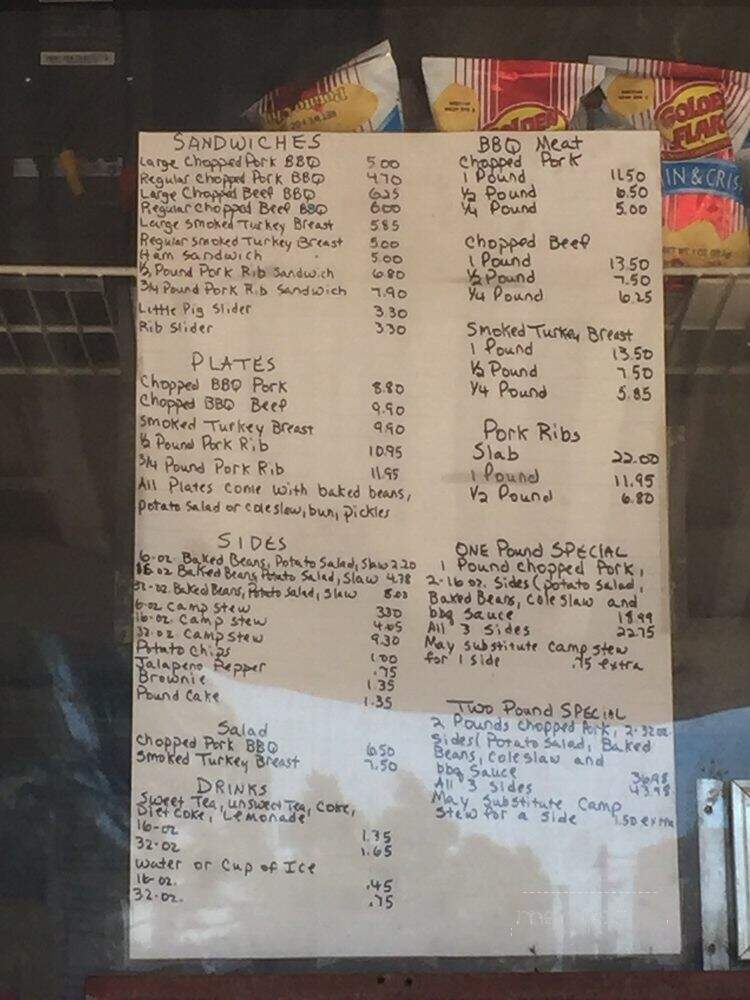 SANDWICHES
Large Chopped Pork BBQ 5.00
Regular Chopped Pork BBQ 4.70
Large Chopped Beef BBQ 6.25
Regular Chopped Beef BBQ 6.00
Large Smoked Turkey Breast 5.85
Regular Smoked Turkey Breast 5.00
Ham Sandwich 5.00
1/2 Pound Pork Rib Sandwich 6.80
3/4 Pound Pork Rib Sandwich 7.90
Little Pig Slider 3.30
Rib Slider 3.30
PLATES
Chopped BBQ Pork 8.80
Chopped BBQ Beef 9.90
Smoked Turkey Breast 9.90
1/2 Pound Pork Rib 10.95
3/4 Pound Pork Rib 11.95
All Plates come with baked beans,
potato salad or coleslaw, bun, pickles
SIDES
6-oz. Baked Beans, Potato Salad, Slaw 2.20
16 oz Baked Beans, Potato Salad, Slaw 4.78
32-oz. Baked Beans, Potato Salad, Slaw
6-oz Camp Stew 3.30
16-oz. Camp Stew 4.65
32-oz Camp Stew 9.30
Potato Chips 1.00
Jalapeno Pepper .75
Brownie 1.35
Pound Cake 1.35
Salad
Chopped Pork BBQ 6.50
Smoked Turkey Breast 7.50
DRINKS
Sweet Tea, unsweet Tea, Coke,
Diet Coke, Lemonade
16-oz 1.35
32-oz 1.65
Water or Cup of Ice
16-oz. .45
32-oz. .75
BBQ Meat
Chopped Pork
1 Pound 11.50
1/2 Pound 6.50
1/4 Pound 5.00
Chopped Beef
1 Pound 13.50
1/2 Pound 7.50
1/4 Pound 6.25
Smoked Turkey Breast
1 Pound 13.50
1/2 Pound 7.50
1/4 Pound 5.85
Pork Ribs
Slab 22.00
1 Pound 11.95
1/2 Pound 6.80
ONE Pound SPECIAL
1 Pound chopped Pork,
2-16 oz. Sides (potato salad,
Baked Beans, Coleslaw and
bbq Sauce 18.99
All 3 Sides 22.75
May substitute Camp stew
for 1 side .75 extra
Two Pound SPECIAL
2 Pounds chopped Pork, 2-32 oz
Sides (Potato Salad, Baked
Beans, Coleslaw and
bbq Sauce 36.98
All 3 Sides 43.98
May Substitute Camp
Stew for a side 1.50 extra
GOLDEN
FLAKE